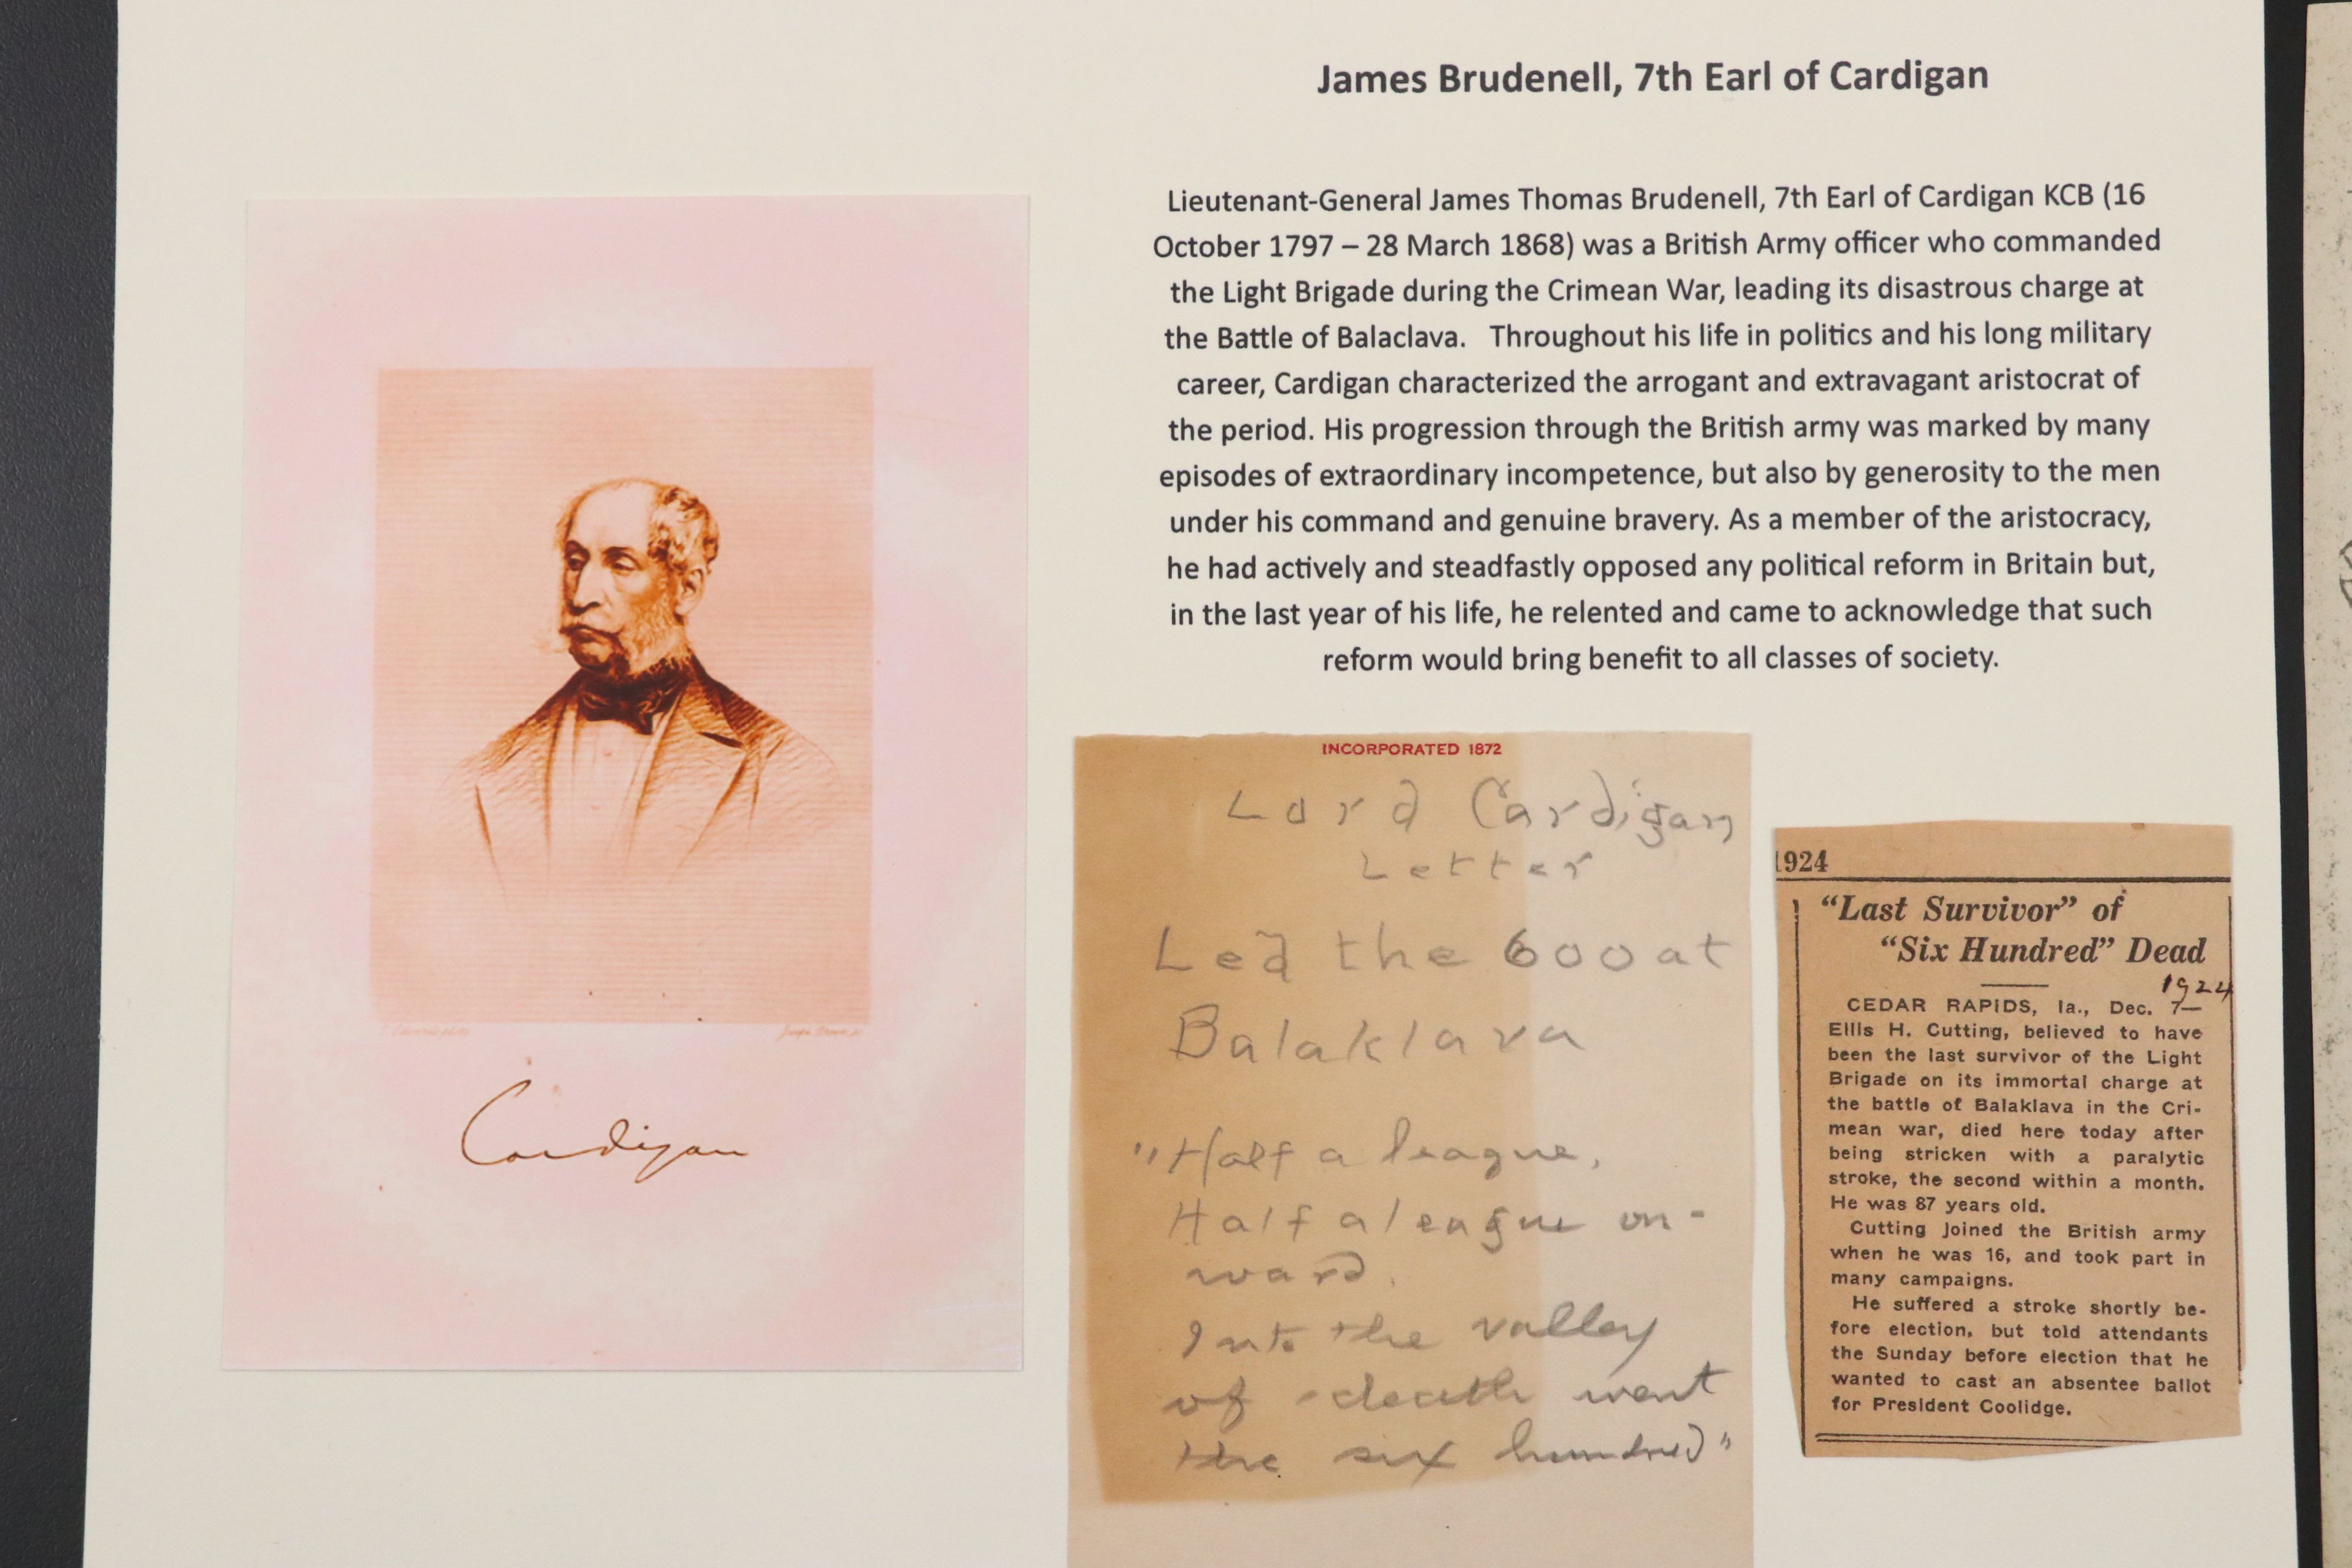 James Brudenell, 7th Earl of Cardigan
Lieutenant-General James Thomas Brudenell, 7th Earl of Cardigan KCB (16
October 1797 – 28 March 1868) was a British Army officer who commanded
the Light Brigade during the Crimean War, leading its disastrous charge at
the Battle of Balaclava. Throughout his life in politics and his long military
career, Cardigan characterized the arrogant and extravagant aristocrat of
the period. His progression through the British army was marked by many
episodes of extraordinary incompetence, but also by generosity to the men
under his command and genuine bravery. As a member of the aristocracy,
he had actively and steadfastly opposed any political reform in Britain but,
in the last year of his life, he relented and came to acknowledge that such
reform would bring benefit to all classes of society.
Cardigan
INCORPORATED 1872
Lord Cardigan
Letter
Led the 600 at
Balaklava
"Half a league,
Half a league on-
ward.
Into the valley
of death went
the six hundred"
1924
"Last Survivor" of
"Six Hundred" Dead
1924
CEDAR RAPIDS, Ia., Dec. 7—
Ellis H. Cutting, believed to have
been the last survivor of the Light
Brigade on its immortal charge at
the battle of Balaklava in the Cri-
mean war, died here today after
being stricken with a paralytic
stroke, the second within a month.
He was 87 years old.
Cutting joined the British army
when he was 16, and took part in
many campaigns.
He suffered a stroke shortly be-
fore election, but told attendants
the Sunday before election that he
wanted to cast an absentee ballot
for President Coolidge.